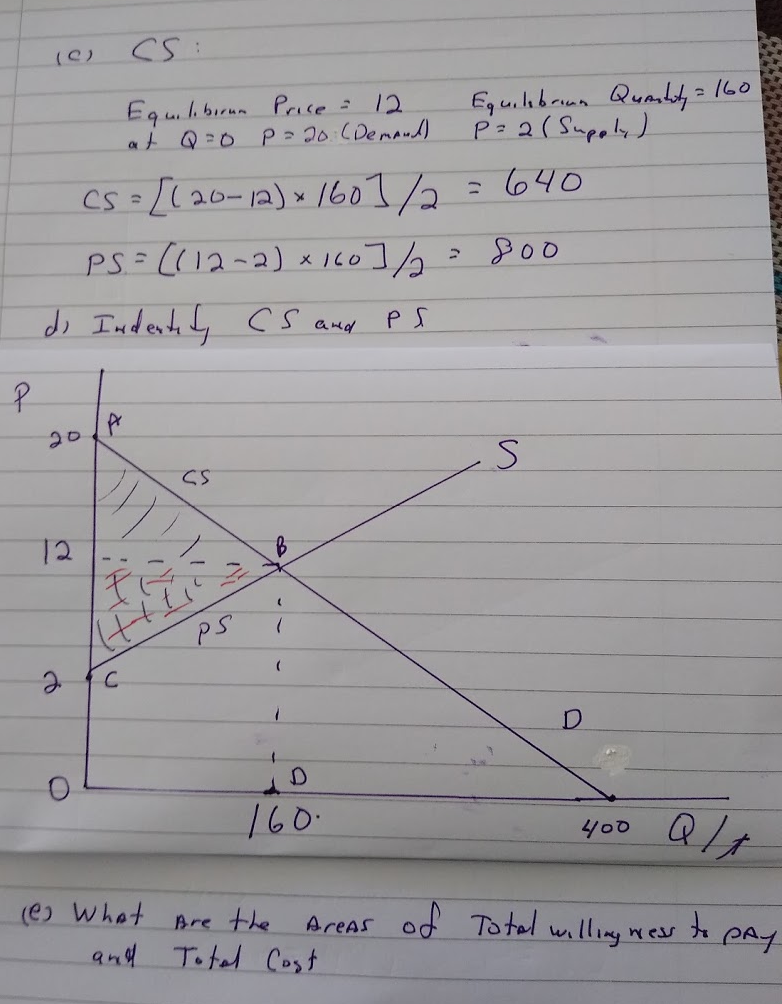 (c) CS:
Equilibrium Price = 12 Equilibrium Quantity = 160
at Q=0 P=20 (Demand) P=2 (Supply)
CS = [(20-12) × 160] /2 = 640
PS = [(12-2) × 160] /2 = 800
d) Indentify CS and PS
P
20 A
CS
S
12
B
PS
2 C
D
0
D
160.
400 Q/t
(e) What Are the AreAs of Total willingness to pAy
and Total Cost